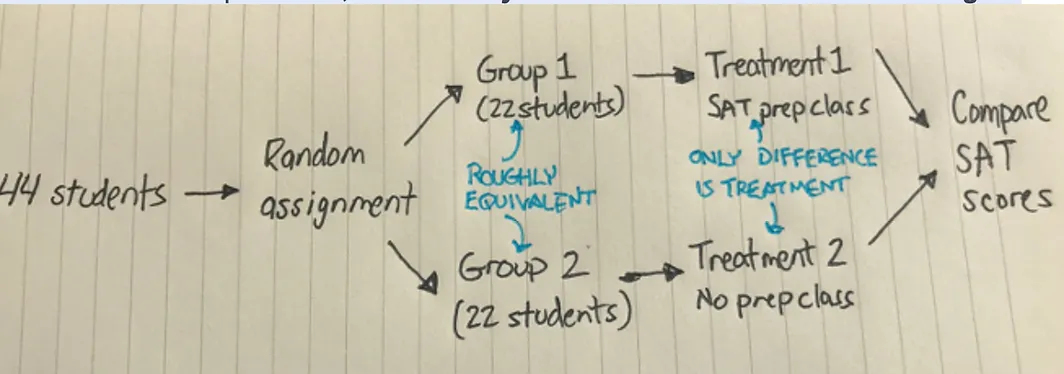 44 students
Random
assignment
Group 1
(22 students)
ROUGHLY
EQUIVALENT
Group 2
(22 students)
Treatment 1
SAT prep class
ONLY DIFFERENCE
IS TREATMENT
Treatment 2
No prep class
Compare
SAT
scores